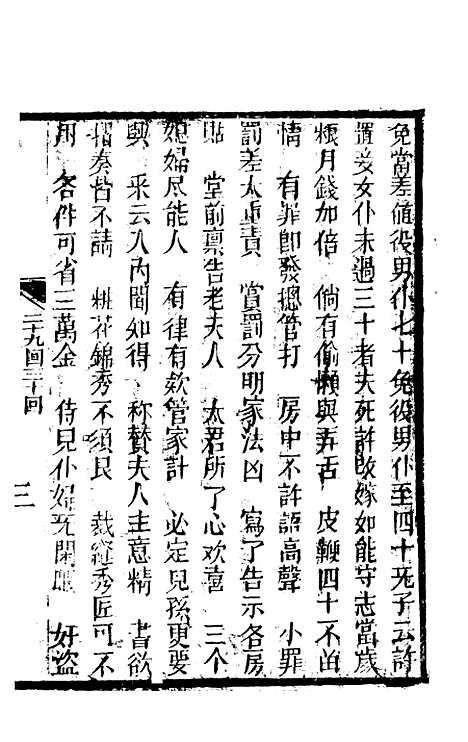 免當差值役男仆七十免役男仆至四十无子云許
置妾女仆未過三十者夫死許改嫁如能守志當歲
粮月錢加倍 倘有偷懶與弄舌 皮鞭四十不苗
情 有罪即發總管打 房中不許語高聲 小罪
罰差太重責 賞罰分明家法凶 寫了告示各房
貼 堂前禀告老夫人 太君所了心欢喜 三个
媳婦尽能人 有律有欵管家計 必定兒孫更要
興 采云入內閣如得 称賛夫人主意精 書欲
摺奏皆不請 桃花錦秀不須民 裁縫秀匠可不
用 各件可省三萬金 侍兒仆婦旡閑 好盗
三十九回三十回
三